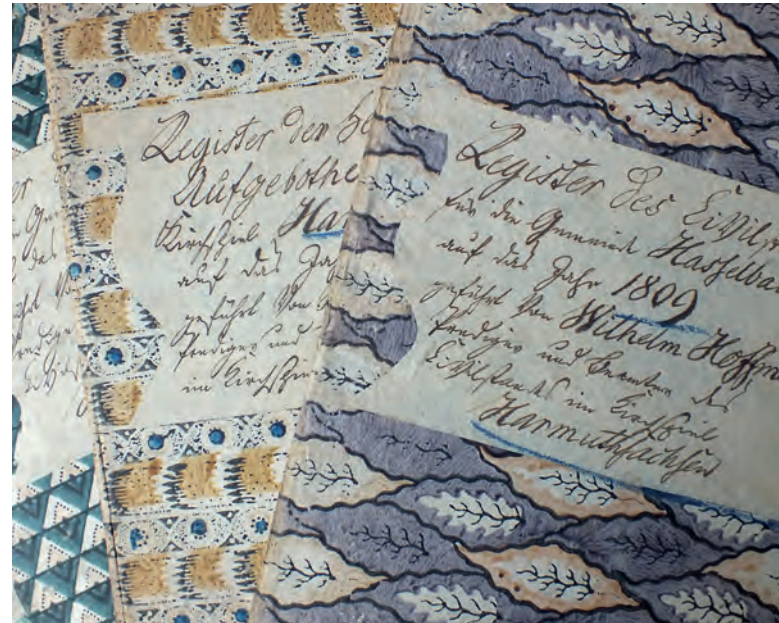 führt Von
Register den He
Aufgebothe
Kirchspiel Har
auf das Jah
geführt Von
Prediger und
im Kirchspie
Register des Civils
für die Gemeind Hasselba
auf das Jahr 1809
geführt Von Wilhelm Hoffm
Prediger und Beamten des
Civilstands im Kirchspiel
Harmuthsachsen